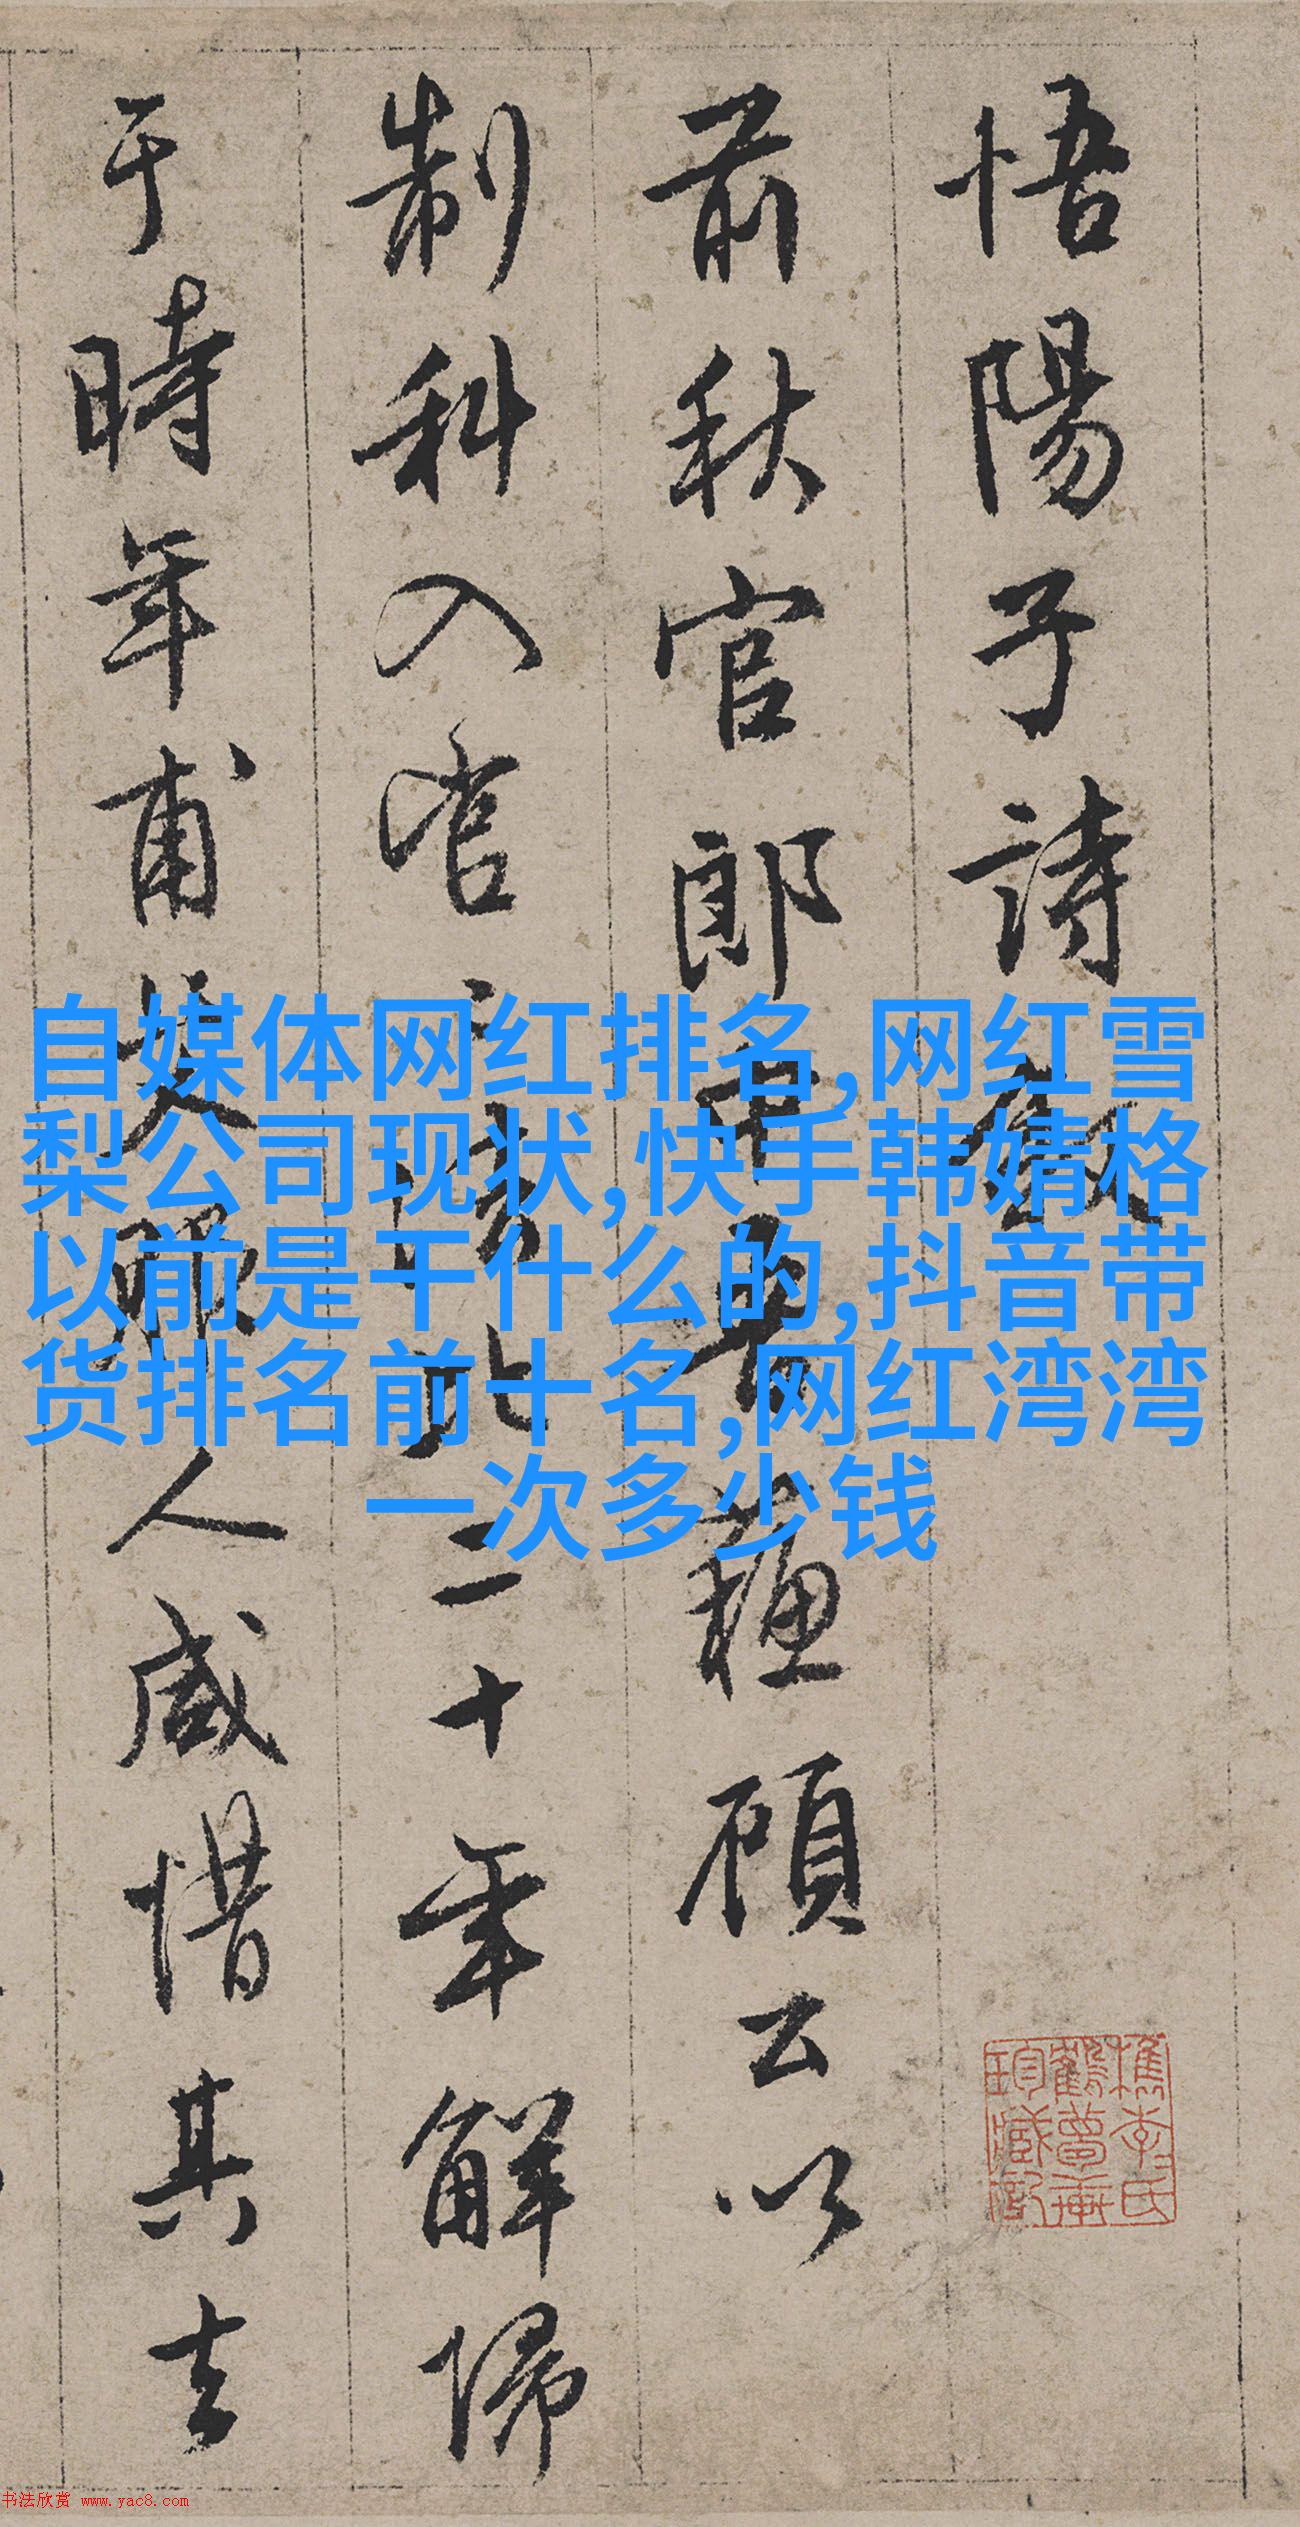 悟陽子詩敘
前秋官郎中顧公以
制科入二十年解歸
于時年甫人咸惜其去
自媒体网红排名,网红雪
梨公司现状,快手韩婧格
以前是干什么的,抖音带
货排名前十名,网红湾湾
一次多少钱
檇李氏
鶴夢軒
珍藏記
书法欣赏 www.yac8.com